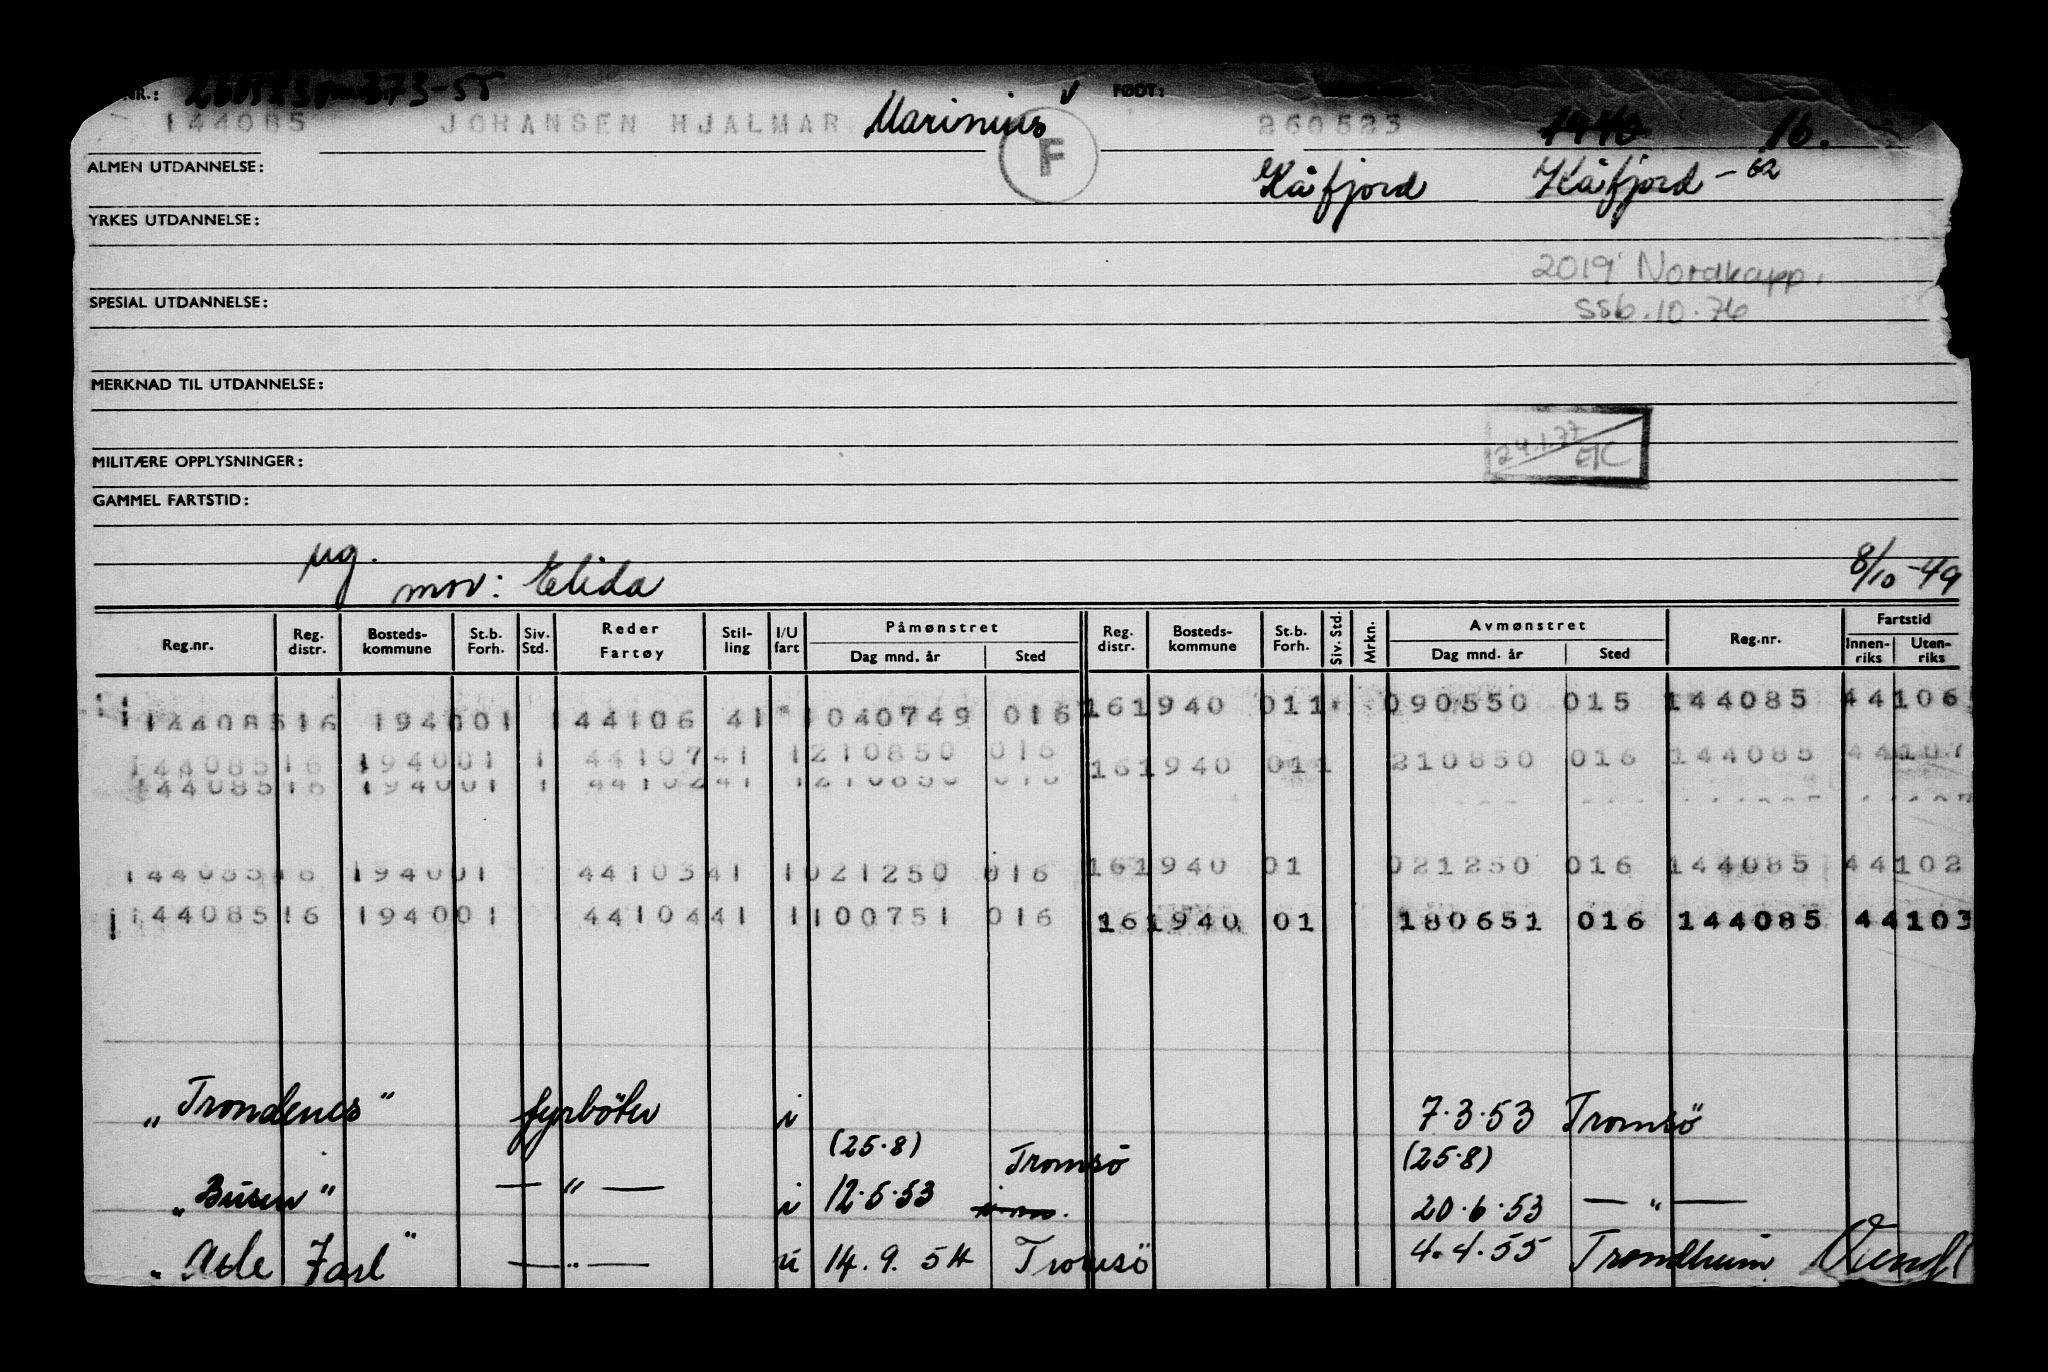 NR.:
FØDT:
144085 JOHANSEN HJALMAR Marinius 260523 1940 16.
F
ALMEN UTDANNELSE:
Kåfjord Kåfjord -62
YRKES UTDANNELSE:
2019 Nordkapp.
SPESIAL UTDANNELSE:
SSB.10.76
MERKNAD TIL UTDANNELSE:
24.1.77 EK
MILITÆRE OPPLYSNINGER:
GAMMEL FARTSTID:
ug.
mor: Elida 8/10-49
Reg.nr. Reg. distr. Bosteds-kommune St.b. Forh. Siv. Std. Reder Fartøy Stil-ling I/U fart Påmønstret Dag mnd. år Sted Reg. distr. Bosteds-kommune St.b. Forh. Siv. Std. Mrkn. Avmønstret Dag mnd. år Sted Reg.nr. Fartstid Innen-riks Uten-riks
14408516 194001 1 44106 41 1040749 016 161940 011 090550 015 144085 44106
14408516 194001 1 44107 41 1210850 016 161940 011 210850 016 144085 44107
14408516 194001 1 44102 41 1210850 016
14408516 194001 44103 41 1021250 016 161940 01 021250 016 144085 44102
14408516 194001 44104 41 1100751 016 161940 01 180651 016 144085 44103
„Trondenes" fyrbøter i 7.3.53 Tromsö
(25.8) Tromsö (25.8)
„Busen" — " — i 12.5.53 20.6.53 — " —
„Asle Jarl" — " — u 14.9.54 Tromsö 4.4.55 Trondheim